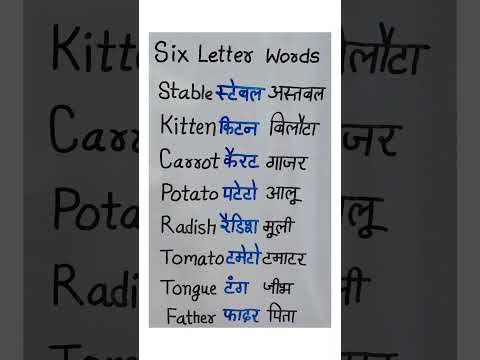 Six Letter Words
Stable स्टेबल अस्तबल
Kitten किटन बिलौटा
Carrot कैरट गाजर
Potato पटेटो आलू
Radish रैडिश मूली
Tomato टमेटो टमाटर
Tongue टंग जीभ
Father फादर पिता